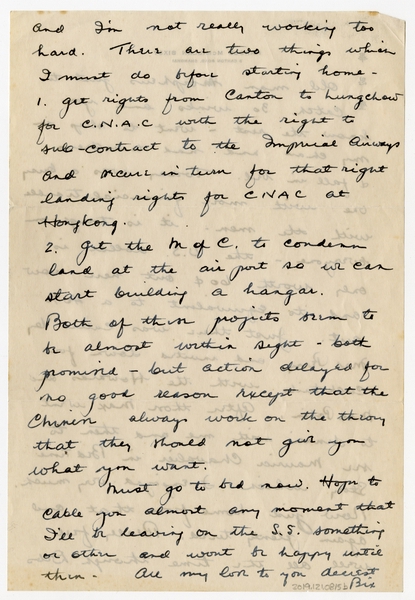 and I'm not really working too
hard. There are two things which
I must do before starting home -
1. get rights from Canton to Lungchow
for C.N.A.C with the right to
sub-contract to the Imperial Airways
and secure in turn for that right
landing rights for CNAC at
Hongkong.
2. Get the M of C. to condemn
land at the air port so we can
start building a hangar.
Both of these projects seem to
be almost within sight - both
promised - but action delayed for
no good reason except that the
Chinese always work on the theory
that they should not give you
what you want.
Must go to bed now. Hope to
cable you almost any moment that
I'll be leaving on the S.S. something
or other and wont be happy until
then - All my love to you dearest
Bix
2019.12.0815b